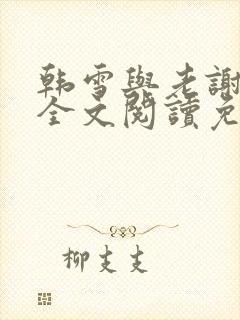 韩雪與老謝
全文閱讀免
柳支支